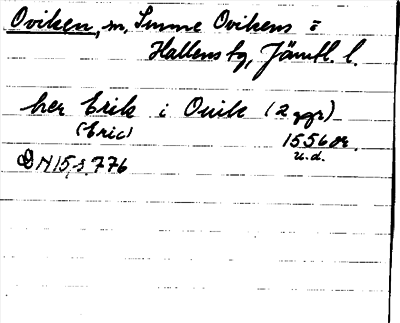 Oviken, m. Sunne Ovikens o
Hallens tg, Jämtl. l.
her Erik i Ouik (2 ggr)
(Eric) 1556 or.
u.d.
DN 15, s. 776